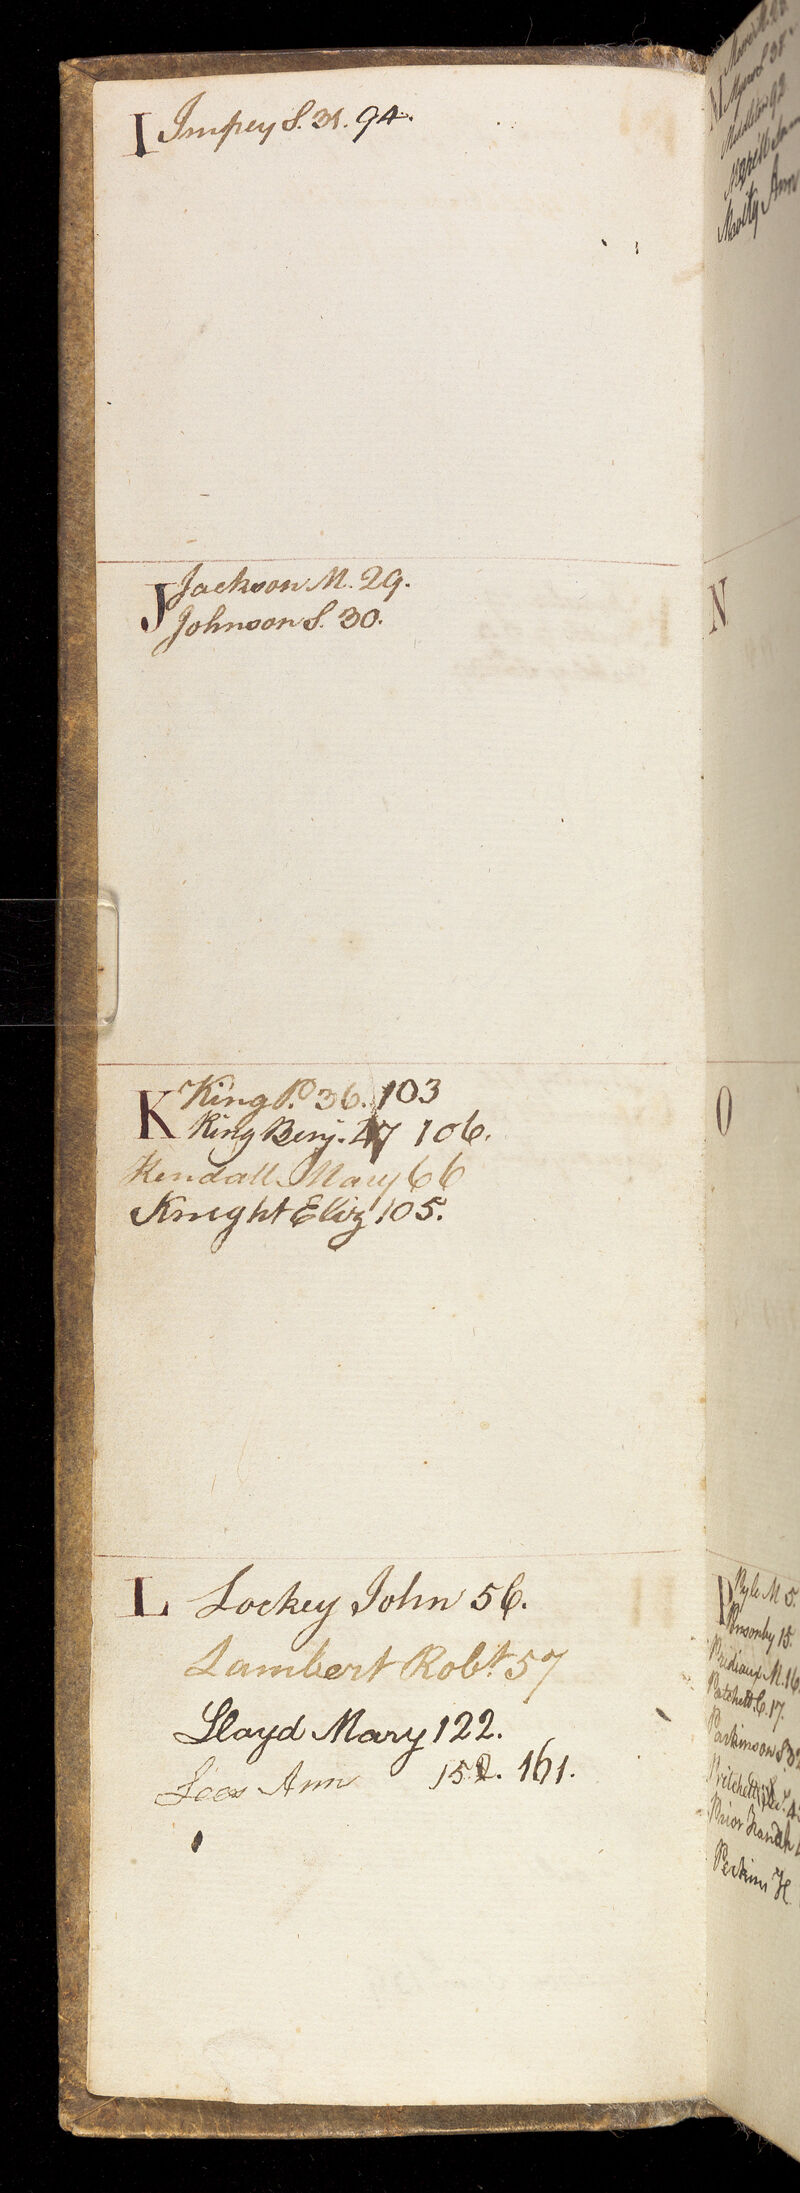 I Impey S. 31. 94.
J Jackson M. 29.
Johnson S. 30.
K King P. 36. 103
King Benj. 47 106.
Kendall Mary 66
Knight Eliz 105.
L Lockey John 56.
Lambert Robt. 57
Lloyd Mary 122.
Lees Ann 152. 161.
M
Middleton 93
Ann
N
O
P Pyle M 5.
Ponsonby 15.
Prideaux M. 16
Patchett C. 17.
Parkinson S. 32
Pritchett
Prior Hanah
Perkins H